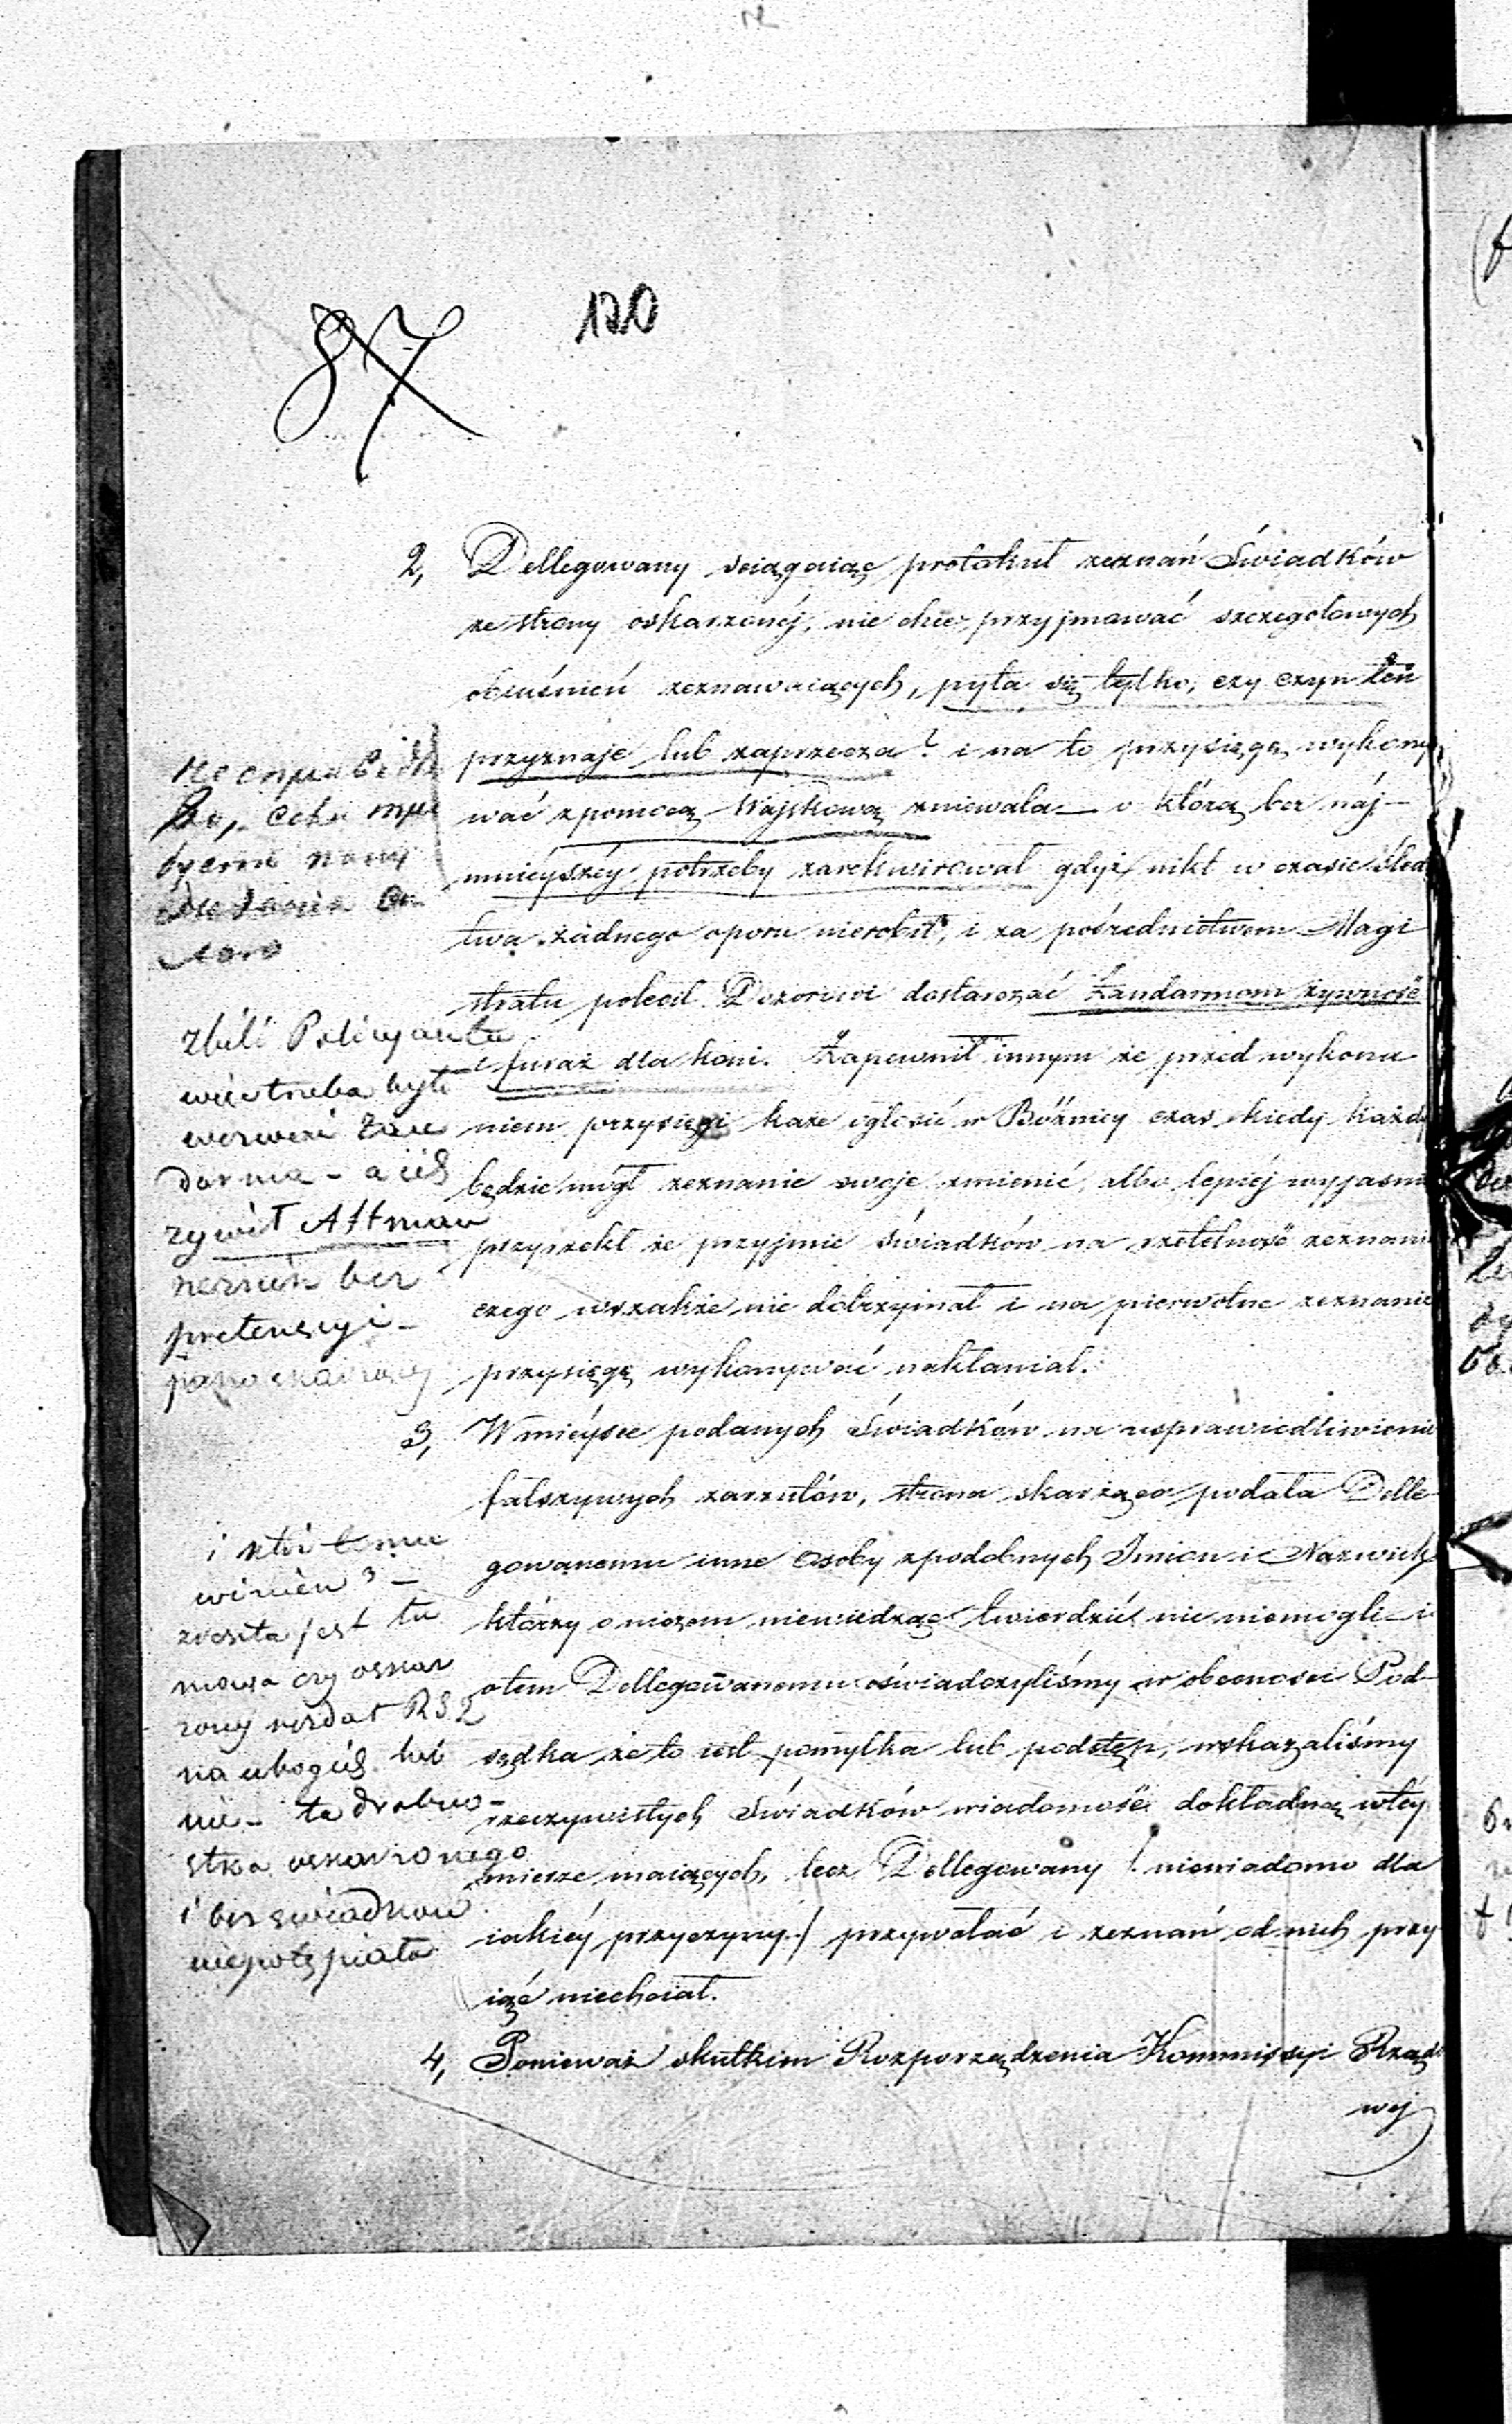 120
87
2, Dellegowany sciągaiąc protokuł zeznań Świadków
ze strony oskarzonéj, nie chce przyjmować szczegolowych
obiaśnień zeznawaiących, pyta się tylko, czy czyn ten
przyznaje lub zaprzecza? i na to przysięgę wykony
wać zpomocą Wojskową zniewala — o którą bez náj-
mnieyszéy potrzeby zarekwirował gdyż nikt w czasie śledz
twa żadnego oporu nierobił, i za pośrednictwem Magi
stratu polecił Dozorowi dostarczać Żandarmom żywność
i furaż dla koni. Zapewnił innym że przed wykona
niem przysięgi każe ogłosić w Bóżnicy czas kiedy każdy
będzie mógł zeznanie swoje zmienić, albo lepiéj wyjasni
przyrzekł że przyjmie Świadków na rzetelność zeznani
czego wszakże nie dotrzymał i na pierwotne zeznanie
przysięgę wykonywać nakłaniał.
3, W miéysce podanych Świadków na usprawiedliwienie
fałszywych zarzutów, strona skarżąca podała Delle-
gowanemu inne Osoby zpodobnych Imion i Nazwisk
którzy o niczem niewiedząc twierdzić nic niemogli — i
otem Dellegowanemu oświadczyliśmy w obecnosci Pod-
sędka że to iest pomyłka lub podstęp, wskazaliśmy
rzeczywistych Świadków wiadomość dokładną wtéy
mierze maiących, lecz Dellegowany /: niewiadomo dla
iakiéy przyczyny :/ przywołać i zeznań od nich przy
iąć niechciał.
4, Ponieważ skutkiem Rozporządzenia Kommissyi Rządo
wej
zbili Policyanta
więc trzeba było
wezwać Żan
darma - a iiś
żywił Altman
bez
pretensyi -
i któż temu
winien? -
zreszta jest tu
mowa czy oskar
zony wydał RS 2
na ubogich lub
nie - ta drobno-
stka oskarzonego
i bez swiadkow
niepotępiała